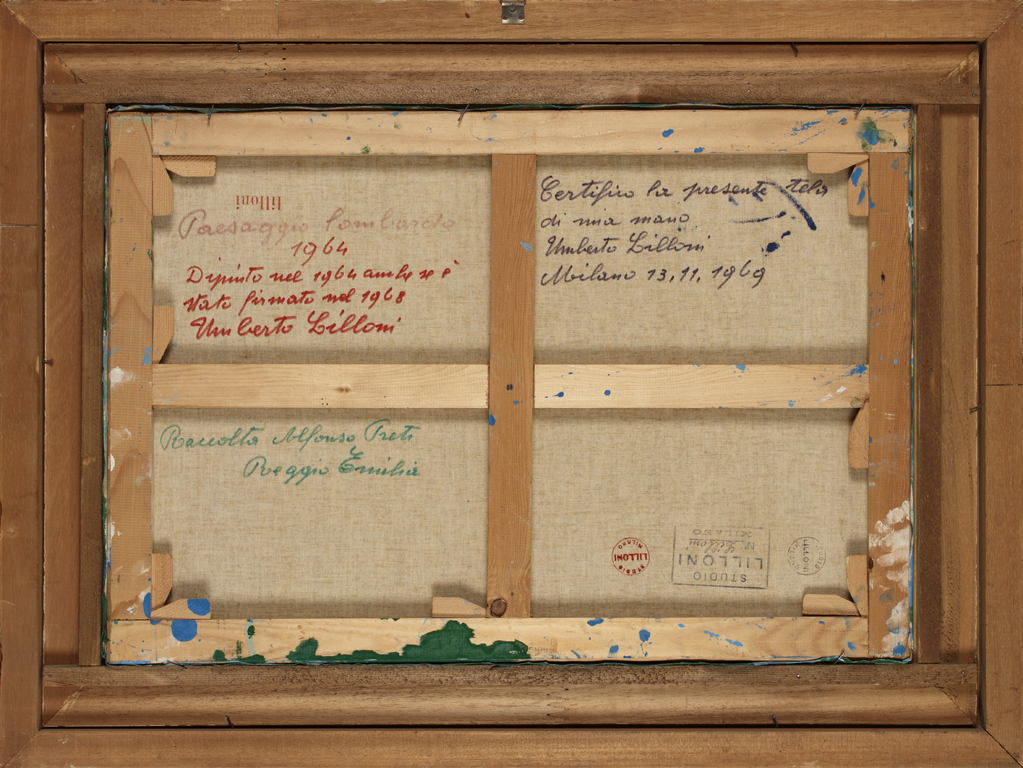 lilloni
Paesaggio lombardo
1964
Dipinto nel 1964 anche se è
stato firmato nel 1968
Umberto Lilloni
Certifico la presente tela
di mia mano
Umberto Lilloni
Milano 13.11.1969
Raccolta Alfonso Preti
Reggio Emilia
STUDIO
LILLONI
MILANO
STUDIO
LILLONI
No Lilloni
MILANO
LILLONI